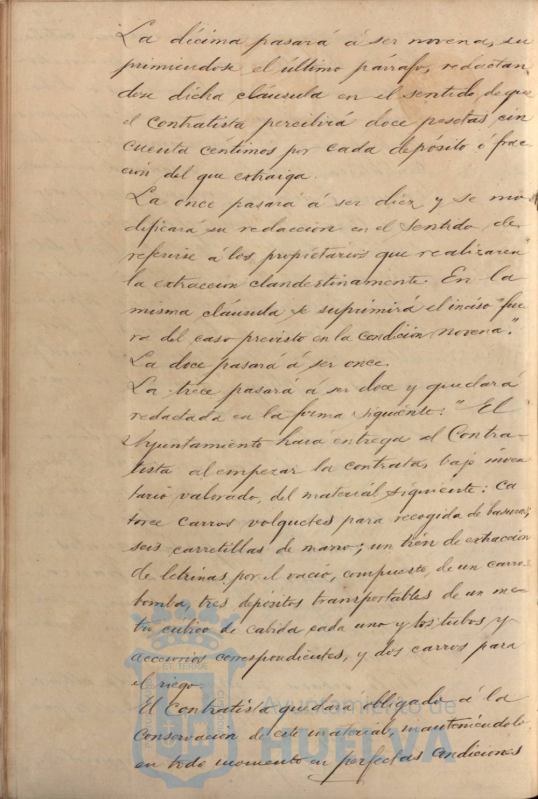 La décima pasará á ser novena, su
primiendose el último párrafo, redactan
dose dicha cláusula en el sentido de que
el Contratista percibirá doce pesetas cin
cuenta céntimos por cada depósito ó frac
cion del que extraiga.
La once pasará á ser diez y se mo
dificará su redaccion en el sentido de
referirse á los propietarios que realizaren
la extraccion clandestinamente. En la
misma cláusula se suprimirá el inciso "fue
ra del caso previsto en la condición novena."
La doce pasará á ser once.
La trece pasará á ser doce y quedará
redactada en la forma siguiente: "El
Ayuntamiento hará entrega al Contra-
tista al empezar la contrata, bajo inven
tario valorado, del material siguiente: Ca
torce carros volquetes para recogida de basuras;
seis carretillas de mano; un trén de extracción
de letrinas por el vacio, compuesto, de un carro
bomba, tres depósitos transportables de un me-
tro cúbico de cabida cada uno y los tubos y
accesorios correspondientes, y dos carros para
el riego.
El Contratista quedará obligado á la
Conservación de este material, manteniéndolo
en todo momento en perfectas condiciones
Ayuntamiento de
HUELVA